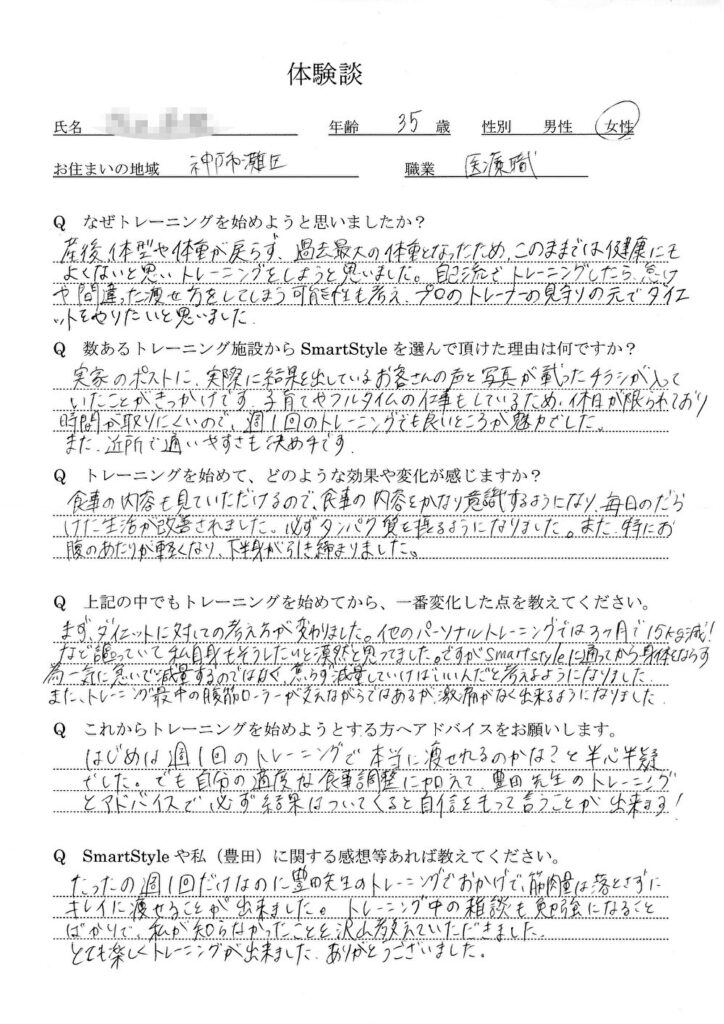 体験談
氏名 年齢 35 歳 性別 男性 女性
お住まいの地域 神戸市灘区 職業 医療職
Q なぜトレーニングを始めようと思いましたか?
産後、体型や体重が戻らず、過去最大の体重となったため、このままでは健康にも
よくないと思いトレーニングをしようと思いました。自己流でトレーニングしたら、怠け
や間違った痩せ方をしてしまう可能性も考え、プロのトレーナーの見守りの元でダイエ
ットをやりたいと思いました。
Q 数あるトレーニング施設から SmartStyle を選んで頂けた理由は何ですか?
実家のポストに、実際に結果を出しているお客さんの声と写真が載ったチラシが入って
いたことがきっかけです。子育てやフルタイムの仕事もしているため、休日が限られており
時間が取りにくいので、週1回のトレーニングでも良いところが魅力でした。
また、近所で通いやすさも決め手です。
Q トレーニングを始めて、どのような効果や変化が感じますか?
食事の内容も見ていただけるので、食事の内容をかなり意識するようになり、毎日のだら
けた生活が改善されました。必ずタンパク質を摂るようになりました。また、特にお
腹のあたりが軽くなり、下半身が引き締まりました。
Q 上記の中でもトレーニングを始めてから、一番変化した点を教えてください。
まず、ダイエットに対しての考え方が変わりました。他のパーソナルトレーニングでは3ヶ月で15kg減!
など謳っていて私自身もそうしたいと漠然と思ってました。ですがSmartstyleに通ってから、身体をならす
為一気に急いで減量するのではなく、焦らず減量していけばいいんだと考えるようになりました。
また、トレーニング最中の腹筋ローラーが支えながらではあるが、激痛がなく出来るようになりました。
Q これからトレーニングを始めようとする方へアドバイスをお願いします。
はじめは週1回のトレーニングで本当に痩せれるのかな?と半心半疑
でした。でも自分の適度な食事調整に加えて、豊田先生のトレーニング
とアドバイスで必ず結果はついてくると自信をもって言うことが出来ます!
Q SmartStyle や私(豊田)に関する感想等あれば教えてください。
たったの週1回だけなのに豊田先生のトレーニングでおかげで、筋肉量は落とさずに
キレイに痩せることが出来ました。トレーニング中の雑談も勉強になること
ばかりで、私が知らなかったことを沢山教えていただきました。
とても楽しくトレーニングが出来ました。ありがとうございました。